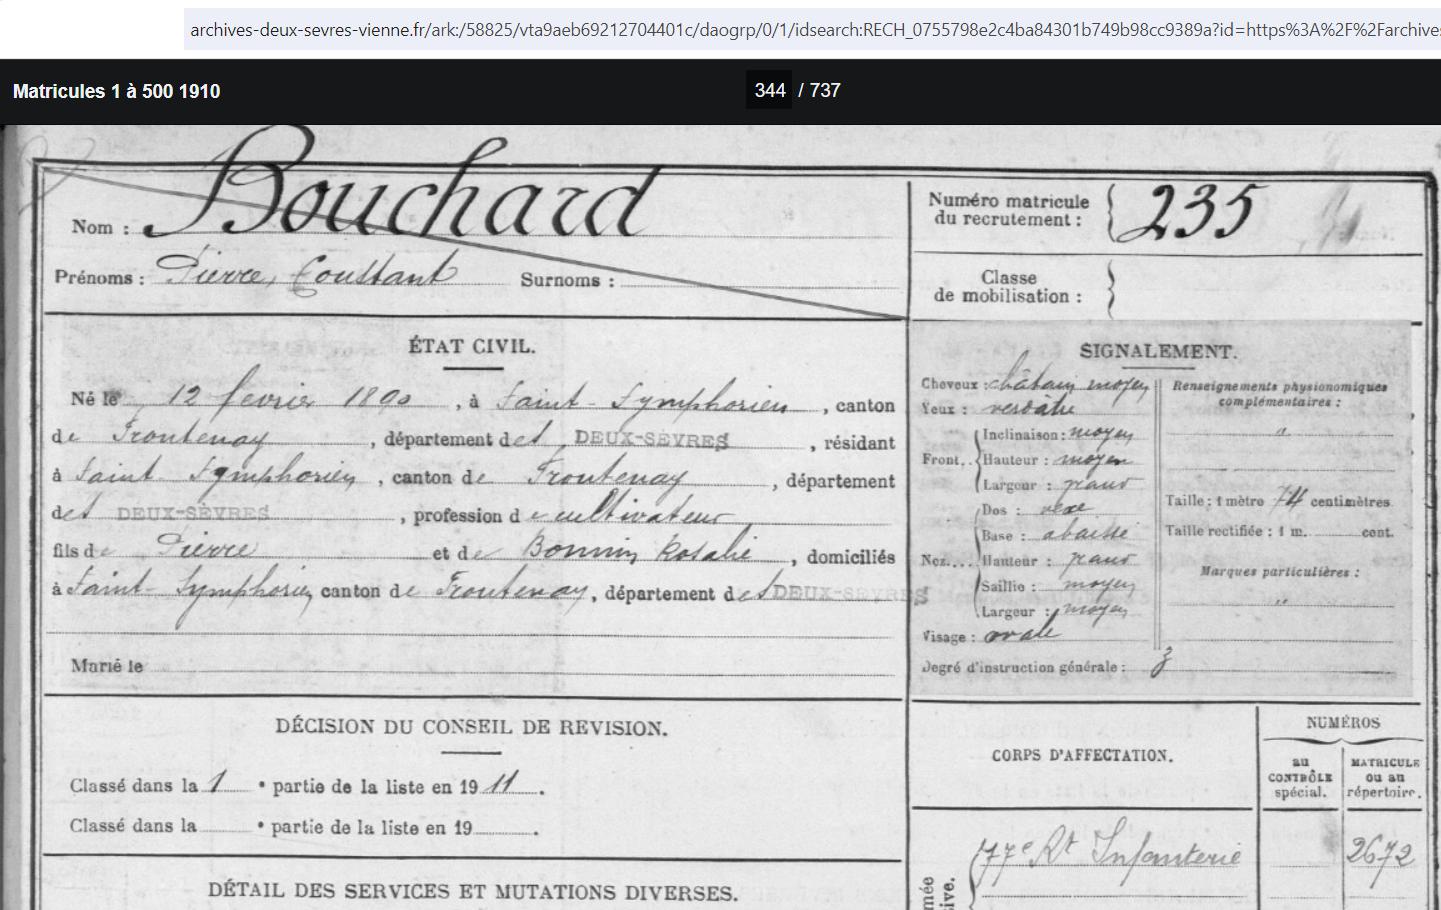 archives-deux-sevres-vienne.fr/ark:/58825/vta9aeb69212704401c/daogrp/0/1/idsearch:RECH_0755798e2c4ba84301b749b98cc9389a?id=https%3A%2F%2Farchive
Matricules 1 à 500 1910
344 / 737
Nom : Bouchard
Prénoms : Pierre, Constant Surnoms :
Numéro matricule
du recrutement : 235
Classe
de mobilisation :
ÉTAT CIVIL.
Né le 12 février 1890, à Saint-Symphorien, canton
de Frontenay, département des DEUX-SÈVRES, résidant
à Saint-Symphorien, canton de Frontenay, département
des DEUX-SÈVRES, profession de cultivateur
fils de Pierre et de Bonnin Rosalie, domiciliés
à Saint-Symphorien canton de Frontenay, département des DEUX-SEVRES
Marié le
SIGNALEMENT.
Cheveux : châtain moyen
Yeux : verdâtre
Inclinaison : moyen
Front.. Hauteur : moyen
Largeur : grand
Dos : vexe
Base : abaissé
Nez.... Hauteur : grand
Saillie : moyen
Largeur : moyen
Visage : ovale
Degré d'instruction générale : 3
Renseignements physionomiques
complémentaires :
"
Taille : 1 mètre 74 centimètres
Taille rectifiée : 1 m. cent.
Marques particulières :
"
DÉCISION DU CONSEIL DE REVISION.
Classé dans la 1 e partie de la liste en 1911.
Classé dans la e partie de la liste en 19 .
DÉTAIL DES SERVICES ET MUTATIONS DIVERSES.
CORPS D'AFFECTATION.
NUMÉROS
au
CONTRÔLE
spécial.
MATRICULE
ou au
répertoire.
77e Rt Infanterie 2672